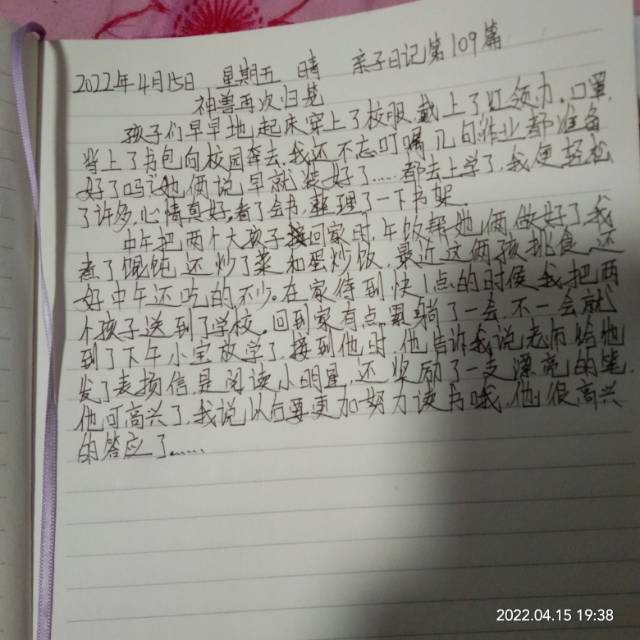 2022年4月15日 星期五 晴 亲子日记第109篇
神兽再次归笼
孩子们早早地起床穿上了校服戴上了红领巾,口罩,
背上了书包向校园奔去,我还不忘叮嘱几句作业都准备
好了吗?她俩说早就装好了……都去上学了,我便轻松
了许多,心情真好,看了会书,整理了一下书架.
中午把两个大孩子接回家时,午饭帮她俩做好了,我
煮了馄饨还炒了菜和蛋炒饭,最近这俩孩挑食,还
好中午还吃的不少.在家待到快1点的时候我把两
个孩子送到了学校.回到家有点累躺了一会,不一会就
到了下午小宝放学了,接到他时,他告诉我说老师给他
发了表扬信是阅读小明星,还奖励了一支漂亮的笔.
他可高兴了,我说从今要更加努力读书哦,他很高兴
的答应了……
2022.04.15 19:38